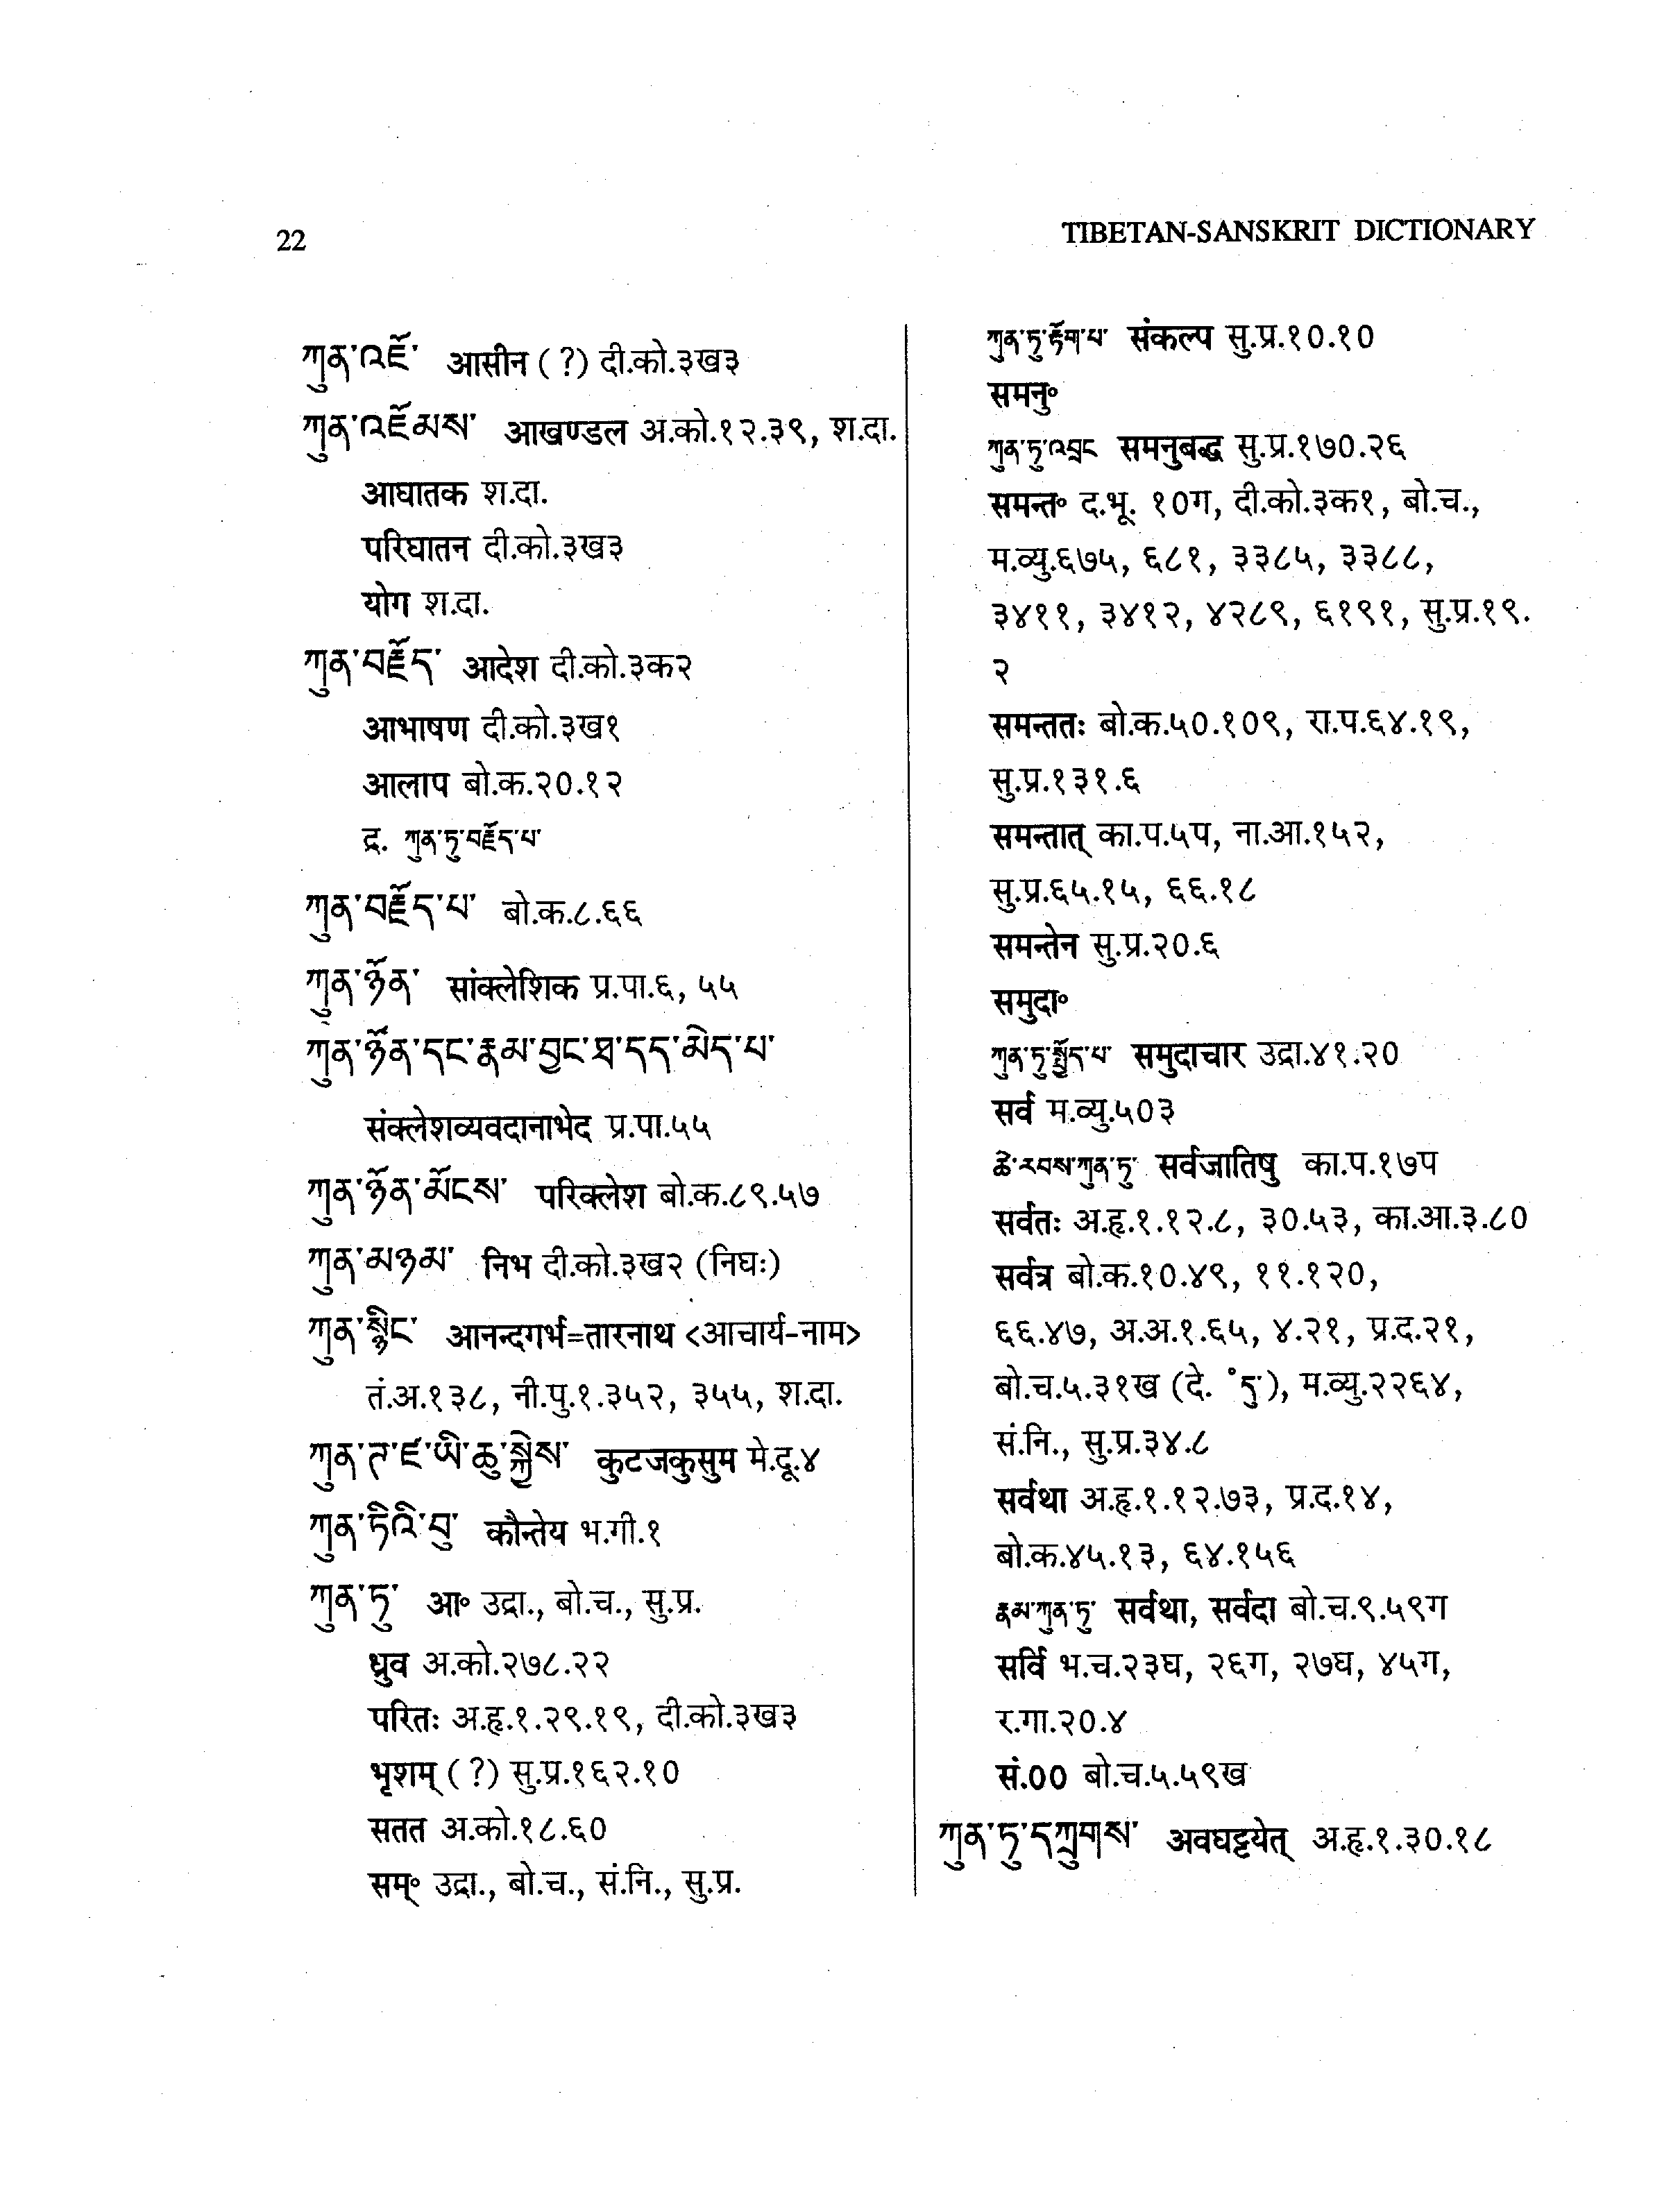 22
TIBETAN-SANSKRIT DICTIONARY
ཀུན་འཇོ་ आसीन (?) दी.को.३ख३
ཀུན་འཇོམས་ आखण्डल अ.को.१२.३९, श.दा.
आघातक श.दा.
परिघातन दी.को.३ख३
योग श.दा.
ཀུན་བརྗོད་ आदेश दी.को.३क२
आभाषण दी.को.३ख१
आलाप बो.क.२०.१२
द्र. ཀུན་ཏུ་བརྗོད་པ་
ཀུན་བརྗོད་པ་ बो.क.८.६६
ཀུན་ཉོན་ सांक्लेशिक प्र.पा.६, ५५
ཀུན་ཉོན་དང་རྣམ་བྱང་ཐ་དད་མེད་པ་
संक्लेशव्यवदानाभेद प्र.पा.५५
ཀུན་ཉོན་མོངས་ परिक्लेश बो.क.८९.५७
ཀུན་མཉམ་ निभ दी.को.३ख२ (निघः)
ཀུན་སྙིང་ आनन्दगर्भ=तारनाथ <आचार्य-नाम>
तं.अ.१३८, नी.पु.१.३५२, ३५५, श.दा.
ཀུན་ཊ་ཛ་ཡི་ཆུ་སྐྱེས་ कुटजकुसुम मे.दू.४
ཀུན་ཏིའི་བུ་ कौन्तेय भ.गी.१
ཀུན་ཏུ་ आ॰ उद्रा., बो.च., सु.प्र.
ध्रुव अ.को.२७८.२२
परितः अ.हृ.१.२९.१९, दी.को.३ख३
भृशम् (?) सु.प्र.१६२.१०
सतत अ.को.१८.६०
सम्॰ उद्रा., बो.च., सं.नि., सु.प्र.
ཀུན་ཏུ་རྟོག་པ་ संकल्प सु.प्र.१०.१०
समनु॰
ཀུན་ཏུ་འབྲང समनुबद्ध सु.प्र.१७०.२६
समन्त॰ द.भू. १०ग, दी.को.३क१, बो.च.,
म.व्यु.६७५, ६८१, ३३८५, ३३८८,
३४११, ३४१२, ४२८९, ६१९१, सु.प्र.१९.
२
समन्ततः बो.क.५०.१०९, रा.प.६४.१९,
सु.प्र.१३१.६
समन्तात् का.प.५प, ना.आ.१५२,
सु.प्र.६५.१५, ६६.१८
समन्तेन सु.प्र.२०.६
समुदा॰
ཀུན་ཏུ་སྤྱོད་པ་ समुदाचार उद्रा.४१.२०
सर्व म.व्यु.५०३
ཚེ་རབས་ཀུན་ཏུ་ सर्वजातिषु का.प.१७प
सर्वतः अ.हृ.१.१२.८, ३०.५३, का.आ.३.८०
सर्वत्र बो.क.१०.४९, ११.१२०,
६६.४७, अ.अ.१.६५, ४.२१, प्र.द.२१,
बो.च.५.३१ख (दे. ॰དུ་), म.व्यु.२२६४,
सं.नि., सु.प्र.३४.८
सर्वथा अ.हृ.१.१२.७३, प्र.द.१४,
बो.क.४५.१३, ६४.१५६
རྣམ་ཀུན་ཏུ་ सर्वथा, सर्वदा बो.च.९.५९ग
सर्वि भ.च.२३घ, २६ग, २७घ, ४५ग,
र.गा.२०.४
सं.०० बो.च.५.५९ख
ཀུན་ཏུ་དཀྲུགས་ अवघट्टयेत् अ.हृ.१.३०.१८